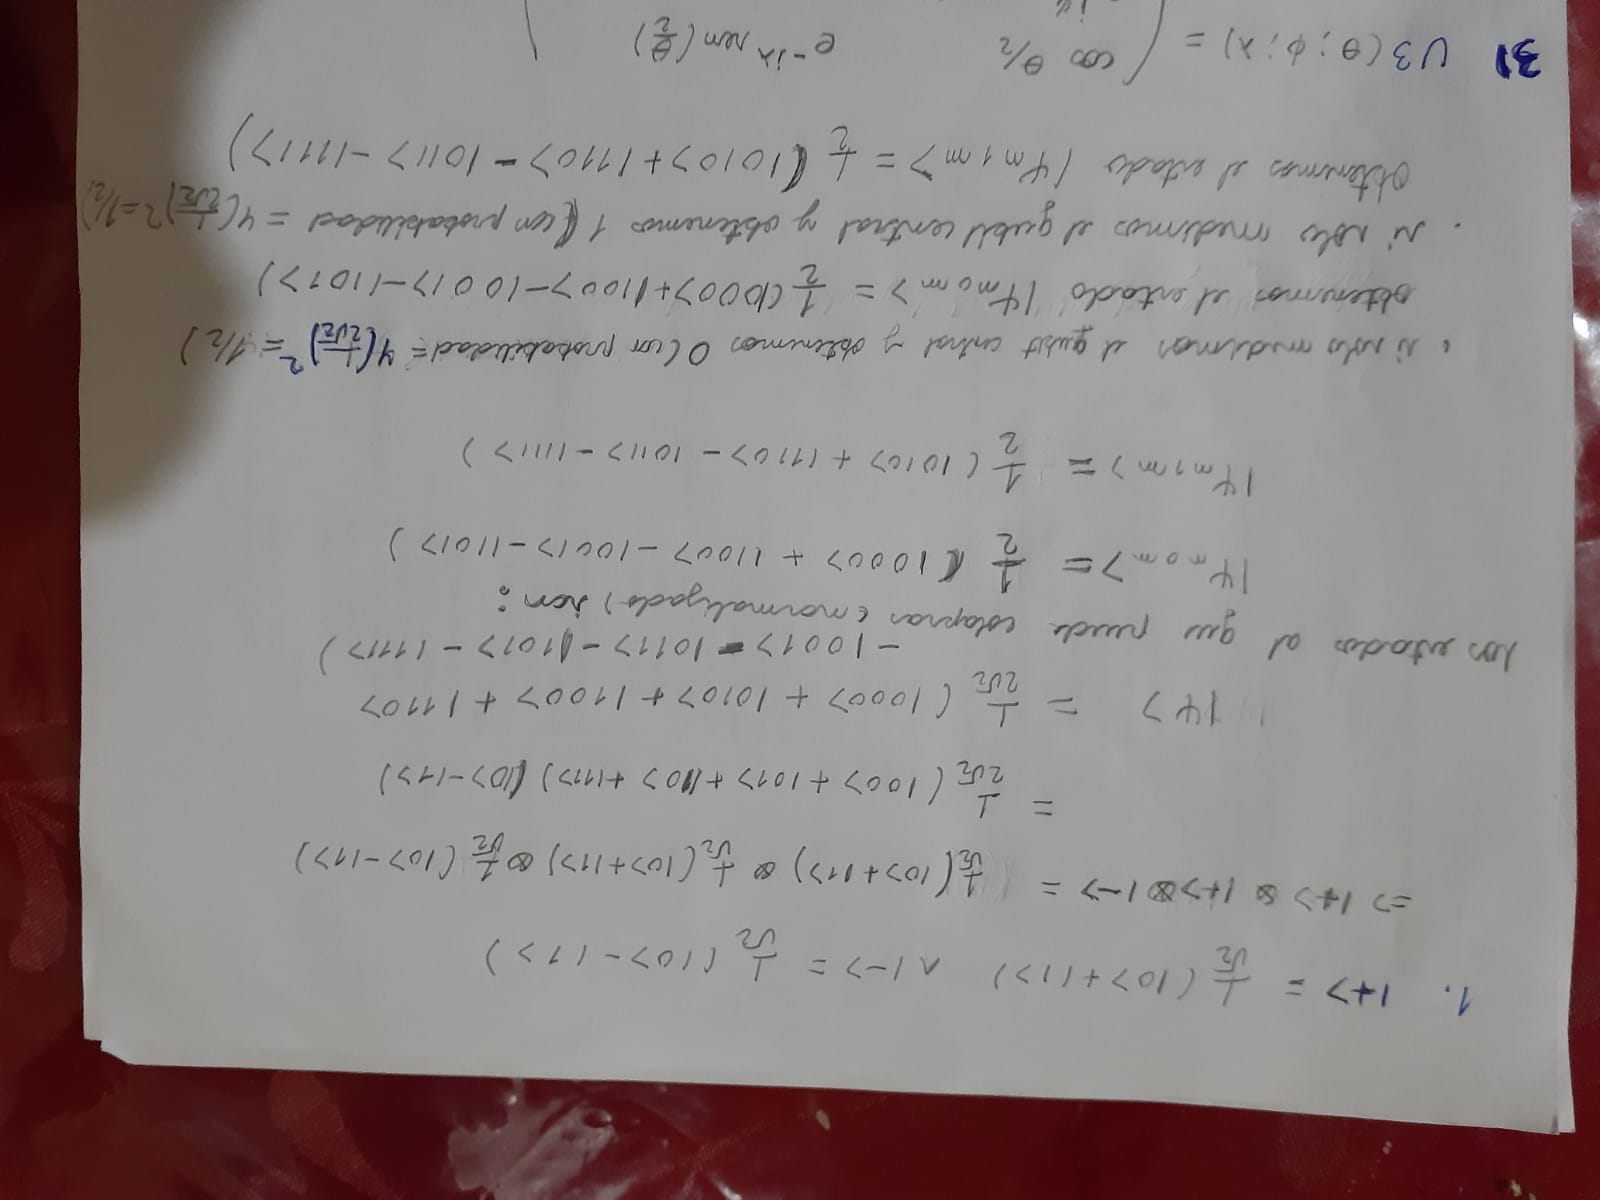 1. |+> = 1/√2 (|0>+|1>) ∧ |-> = 1/√2 (|0>-|1>)
=> |+> ⊗ |+> ⊗ |-> = 1/√2 (|0>+|1>) ⊗ 1/√2 (|0>+|1>) ⊗ 1/√2 (|0>-|1>)
= 1/2√2 (|00> + |01> + |10> + |11>) (|0>-|1>)
|Ψ> = 1/2√2 (|000> + |010> + |100> + |110>
- |001> - |011> - |101> - |111>)
los estados al que puede colapsar (normalizado) son:
|Ψm0m> = 1/2 (|000> + |100> - |001> - |101>)
|Ψm1m> = 1/2 (|010> + |110> - |011> - |111>)
. si solo medimos el qubit central y obtenemos 0 (con probabilidad = 4(1/2√2)² = 1/2)
obtenemos el estado |Ψm0m> = 1/2 (|000>+|100>-|001>-|101>)
. si solo medimos el qubit central y obtenemos 1 (con probabilidad = 4(1/2√2)² = 1/2)
obtenemos el estado |Ψm1m> = 1/2 (|010>+|110> - |011> - |111>)
3) U3(θ; φ; λ) = ( cos θ/2 e^-iλ sen(θ/2) )